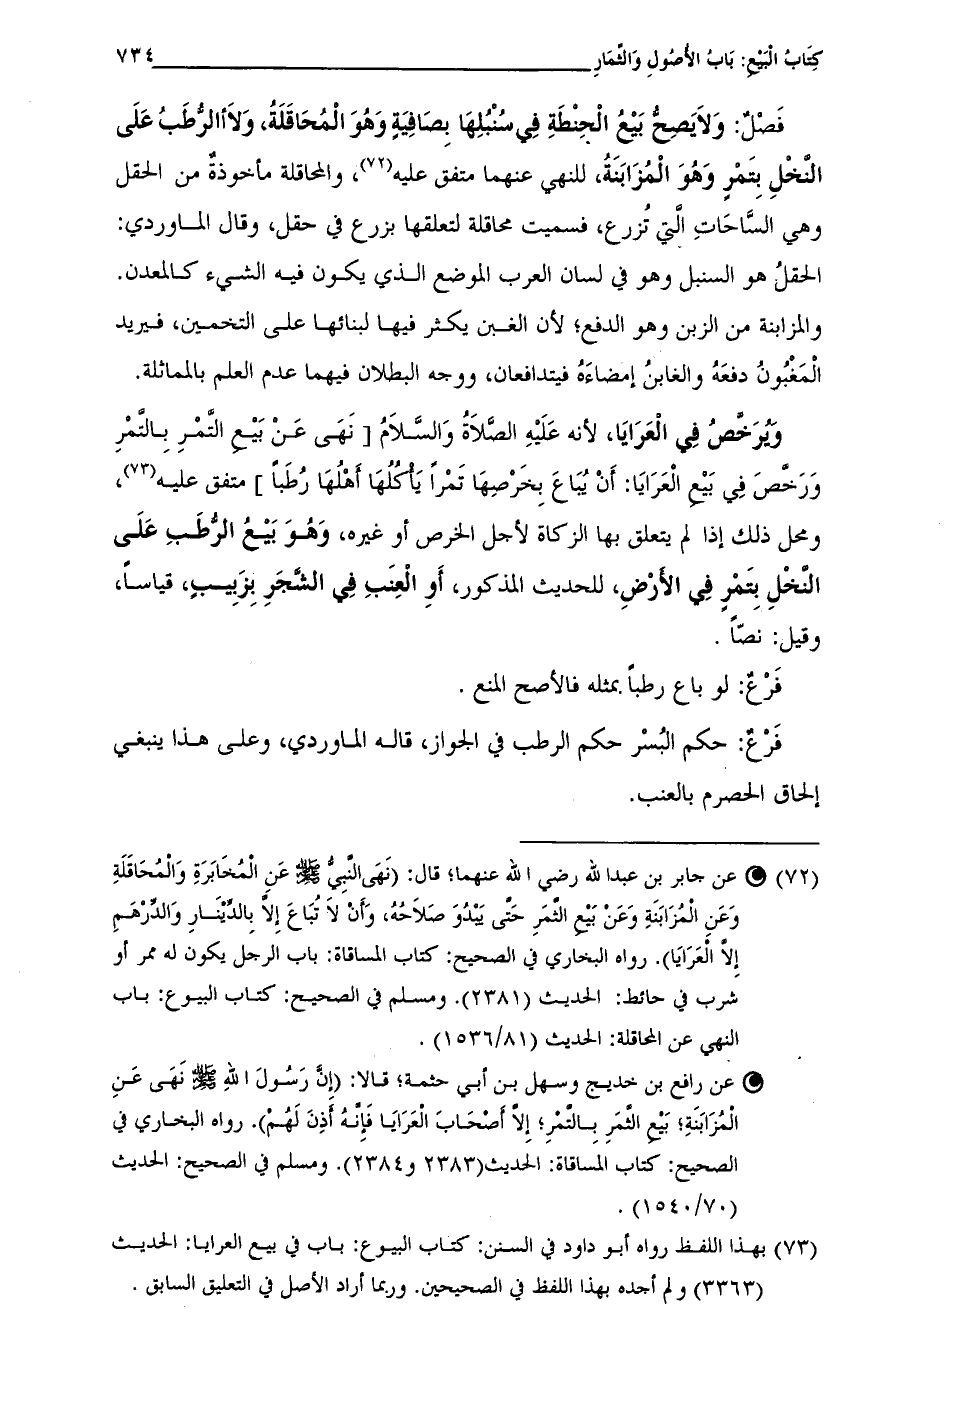 كِتَابُ الْبَيْعِ: بَابُ الأُصُولِ وَالثِّمَارِ ٧٣٤
فَصْلٌ: وَلاَ يَصِحُّ بَيْعُ الْحِنْطَةِ فِي سُنْبُلِهَا بِصَافِيَةٍ وَهُوَ الْمُحَاقَلَةُ، وَلاَ أالرُّطَبُ عَلَى
النَّخْلِ بِتَمْرٍ وَهُوَ الْمُزَابَنَةُ، للنهي عنهما متفق عليه(٧٢)، والمحاقلة مأخوذةٌ من الحقل
وهي السَّاحَاتِ الَّتِي تُزرع، فسميت محاقلة لتعلقها بزرع في حقل، وقال المـاوردي:
الحقلُ هو السنبل وهو في لسان العرب الموضع الـذي يكون فيه الشيء كـالمعدن.
والمزابنة من الزبن وهو الدفع؛ لأن الغـبن يكـثر فيهـا لبنائهـا علـى التخمـين، فـيريد
الْمَغْبُونُ دفعَهُ والغابنُ إمضاءَهُ فيتدافعان، ووجه البطلان فيهما عدم العلم بالمماثلة.
وَيُرَخَّصُ فِي الْعَرَايَا، لأنه عَلَيْهِ الصَّلاَةُ وَالسَّـلاَمُ [ نَهَـى عَـنْ بَيْـعِ التَّمْـرِ بِـالتَّمْرِ
وَرَخَّصَ فِي بَيْعِ الْعَرَايَا: أَنْ يُبَاعَ بِخَرْصِهَا تَمْراً يَأْكُلُهَا أَهْلُهَا رُطَباً ] متفق عليـه(٧٣)،
ومحل ذلك إذا لم يتعلق بها الزكاة لأجل الخرص أو غيره، وَهُـوَ بَيْـعُ الرُّطَـبِ عَلَـى
النَّخْلِ بِتَمْرٍ فِي الأَرْضِ، للحديث المذكور، أَوِ الْعِنَبِ فِي الشَّجَرِ بِزَبِيـبٍ، قياسـاً،
وقيل: نصّاً .
فَرْعٌ: لو باع رطباً بمثله فالأصح المنع .
فَرْعٌ: حكـم البُسْر حكـم الرطب في الجواز، قالـه المـاوردي، وعلـى هـذا ينبغـي
إلحاق الحصرم بالعنب.
(٧٢) عن جابر بن عبدا لله رضي ا لله عنهما؛ قال: (نَهَى النَّبِيُّ ﷺ عَنِ الْمُخَابَرَةِ وَالْمُحَاقَلَةِ
وَعَنِ الْمُزَابَنَةِ وَعَنْ بَيْعِ الثَّمَرِ حَتَّى يَبْدُوَ صَلاَحُهُ، وَأَنْ لاَ تُبَاعَ إِلاَّ بِالدِّيْنَـارِ وَالدِّرْهَـمِ
إِلاَّ الْعَرَايَا). رواه البخاري في الصحيح: كتاب المساقاة: باب الرجل يكون له ممر أو
شرب في حائط: الحديث (٢٣٨١). ومسلم في الصحيح: كتاب البيوع: بـاب
النهي عن المحاقلة: الحديث (١٥٣٦/٨١) .
عن رافع بن خديج وسهل بـن أبي حثمـة؛ قـالا: (إِنَّ رَسُولَ ا للهِ ﷺ نَهَـى عَـنِ
الْمُزَابَنَةِ؛ بَيْعِ الثَّمَرِ بِـالتَّمْرِ؛ إِلاَّ أَصْحَـابَ الْعَرَايَـا فَإِنَّـهُ أَذِنَ لَهُـمْ). رواه البخـاري في
الصحيح: كتاب المساقاة: الحديث(٢٣٨٣ و٢٣٨٤). ومسلم في الصحيح: الحديث
(١٥٤٠/٧٠) .
(٧٣) بهـذا اللفـظ رواه أبـو داود في السنن: كتـاب البيـوع: بـاب في بيـع العرايـا: الحديـث
(٣٣٦٣) و لم أجده بهذا اللفظ في الصحيحين. وربما أراد الأصل في التعليق السابق .